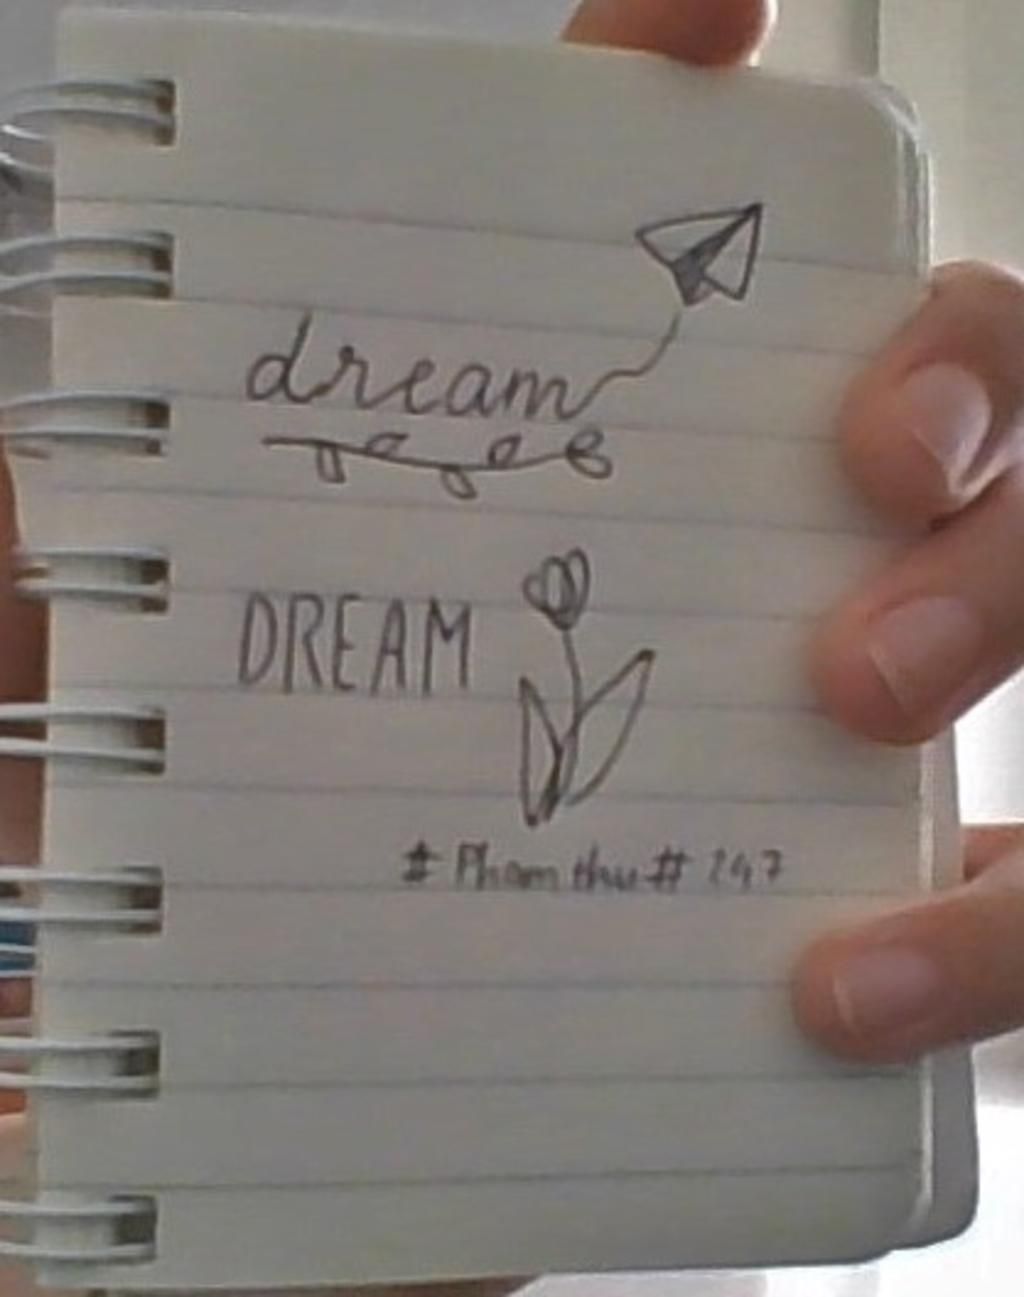 dream
DREAM
# Pham thu # 247